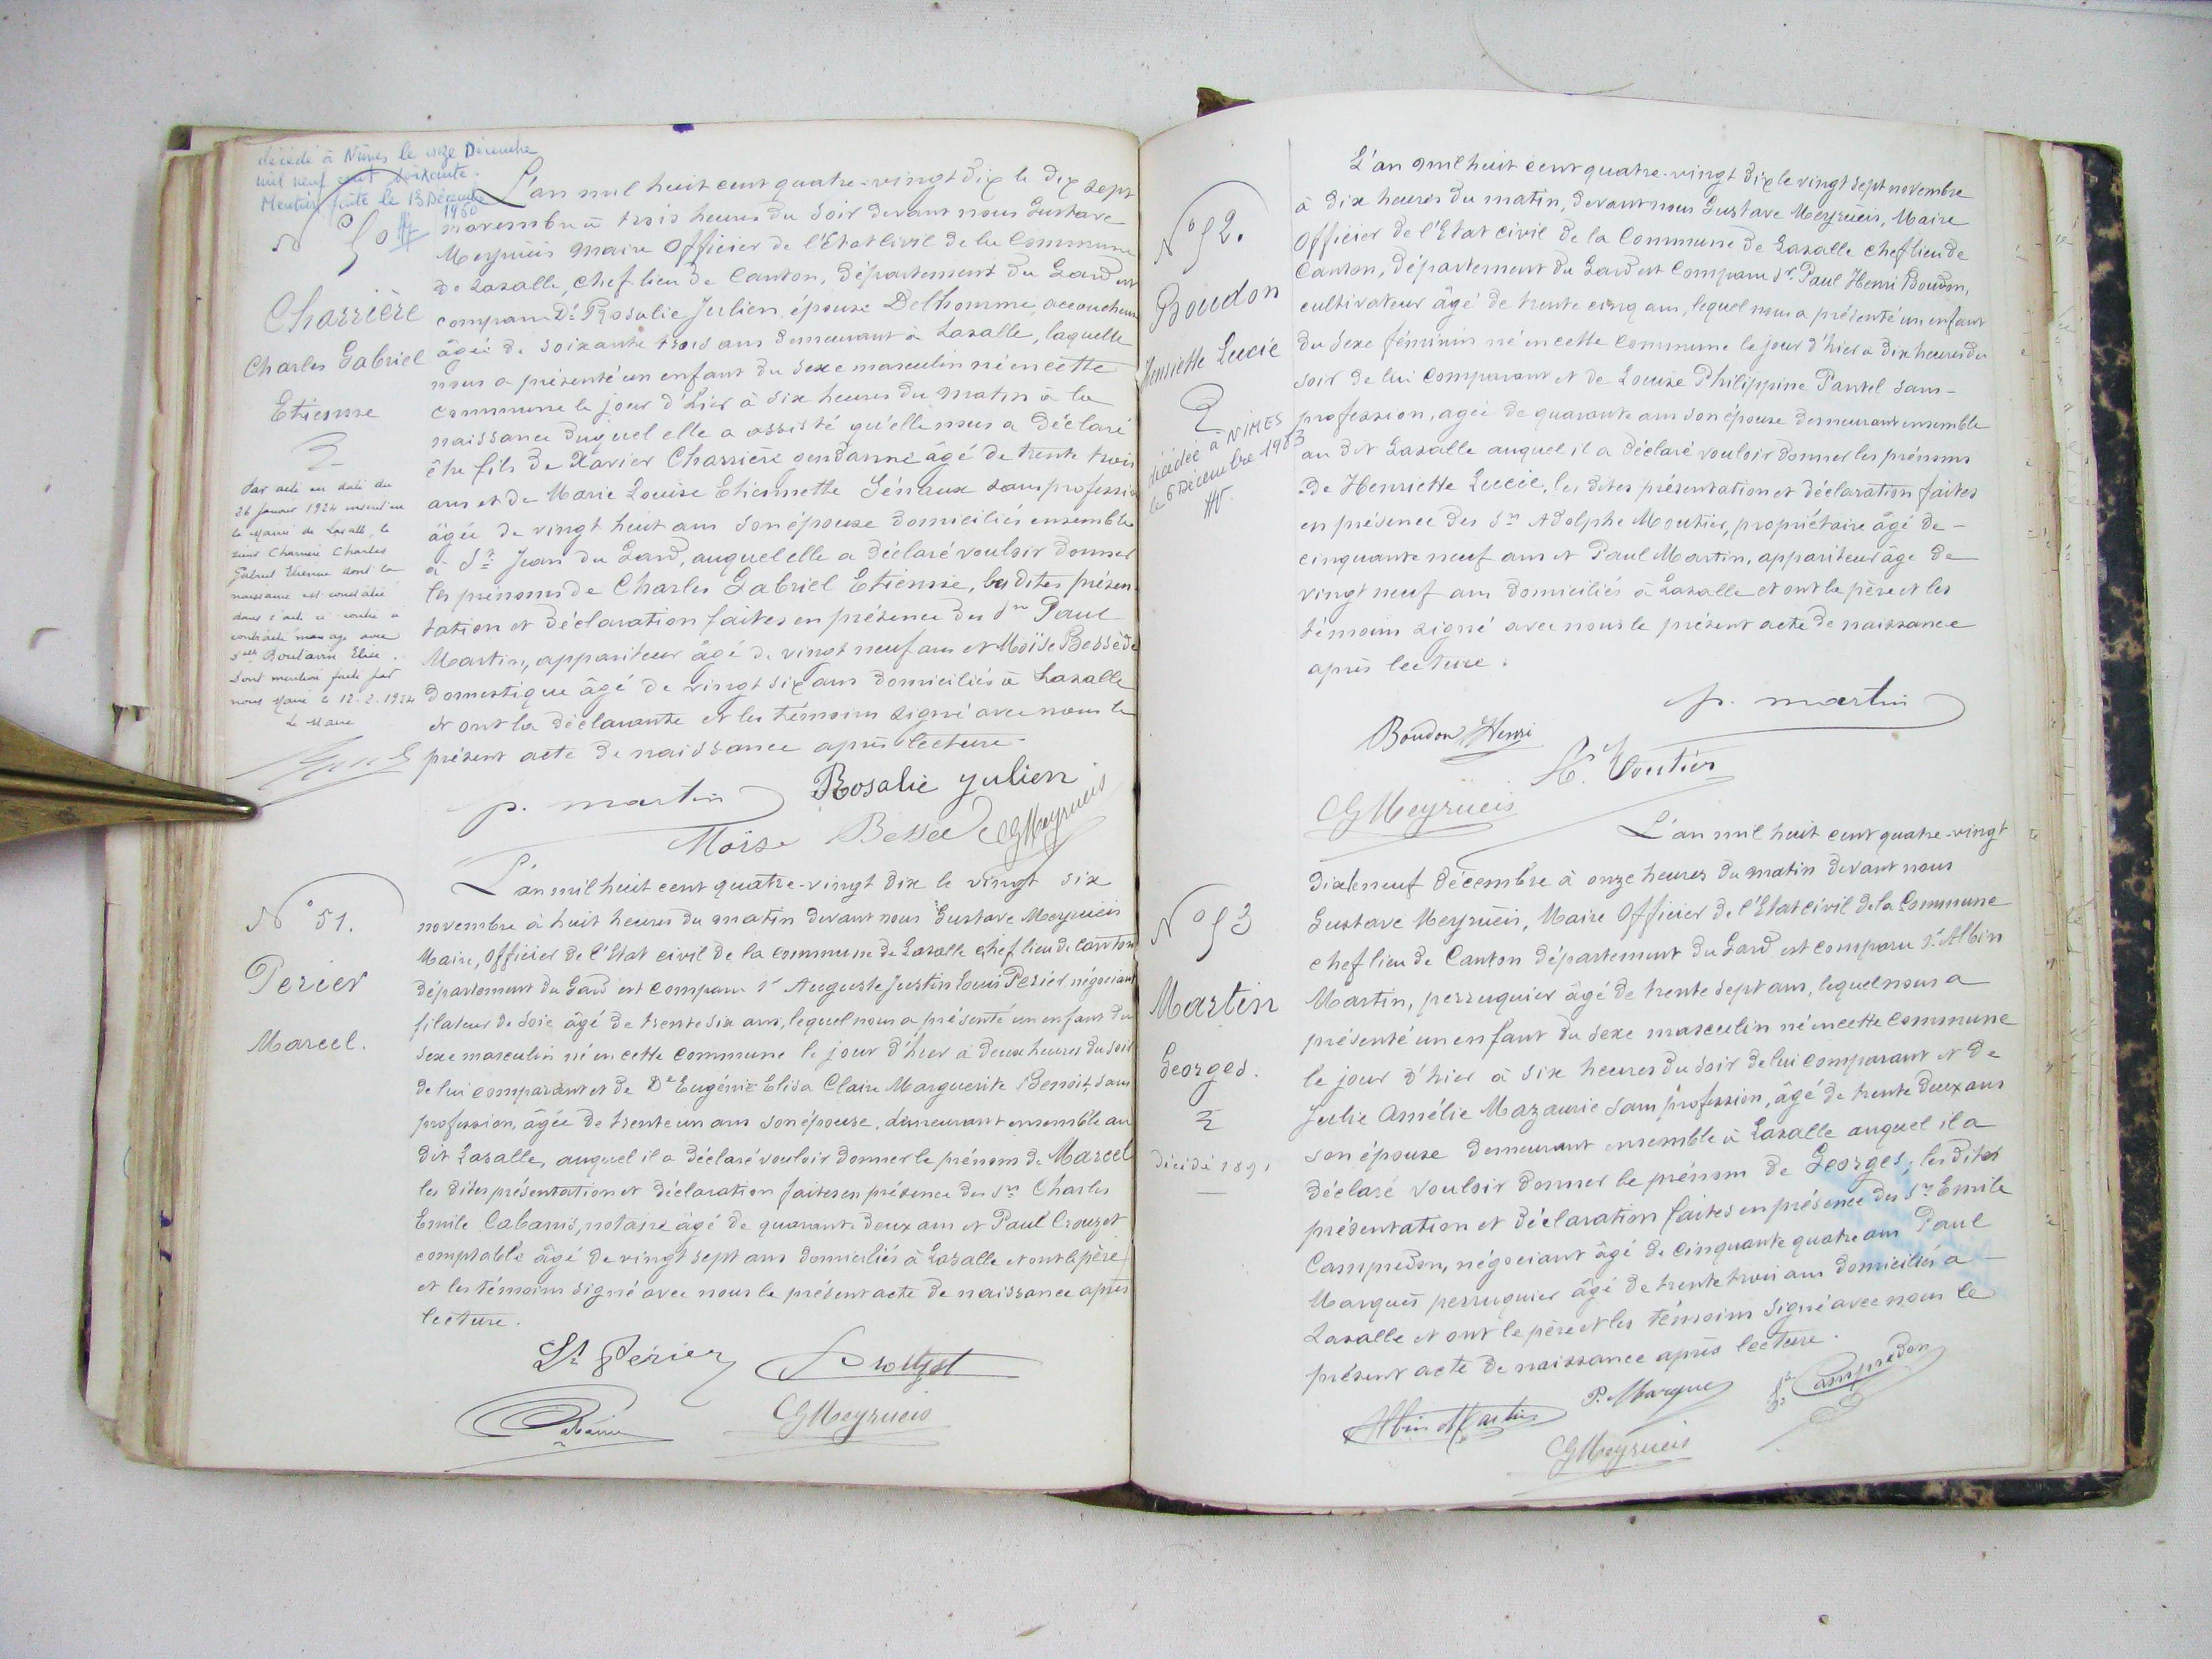 décédé à Nîmes le onze Décembre
mil neuf cent soixante.
Mention faite le 13 Décembre
1960
N° 50
Charrière
Charles Gabriel
Etienne
Par acte en date du
26 janvier 1924 inscrit en
la Mairie de Lasalle, le
sieur Charrière Charles
Gabriel Etienne dont la
naissance est constatée
dans l'acte ci contre a
contracté mariage avec
Dlle Boutavin Elise.
Dont mention faite par
nous Maire le 12.2.1924
Le Maire
L'an mil huit cent quatre-vingt dix le dix sept
novembre à trois heures du soir devant nous Gustave
Meyrueis Maire Officier de l'Etat Civil de la Commune
de Lasalle, chef lieu de Canton, département du Gard est
comparu De Rosalie Julien, épouse Delhomme, accoucheuse
âgée de soixante trois ans demeurant à Lasalle, laquelle
nous a présenté un enfant du sexe masculin né en cette
commune le jour d'hier à six heures du matin à la
naissance duquel elle a assisté qu'elle nous a déclaré
être fils de Xavier Charrière gendarme âgé de trente trois
ans et de Marie Louise Etiennette Génaux sans profession
âgée de vingt huit ans son épouse domiciliés ensemble
à St Jean du Gard, auquel elle a déclaré vouloir donner
les prénoms de Charles Gabriel Etienne, les dites présen-
tation et déclaration faites en présence des Srs Paul
Martin, appariteur âgé de vingt neuf ans et Moïse Bessède
domestique âgé de vingt six ans domiciliés à Lasalle
et ont la déclarante et les témoins signé avec nous le
présent acte de naissance après lecture.
p. martin Rosalie Julien
Moïse Bessede GMeyrueis
N° 51.
Perier
Marcel.
L'an mil huit cent quatre-vingt dix le vingt six
novembre à huit heures du matin devant nous Gustave Meyrueis
Maire, Officier de l'Etat civil de la commune de Lasalle chef lieu de canton
département du Gard est comparu Sr Auguste Justin Louis Perier, négociant
filateur de soie âgé de trente six ans, lequel nous a présenté un enfant du
sexe masculin né en cette commune le jour d'hier à deux heures du soir
de lui comparant et de De Eugénie Elisa Claire Marguerite Benoit, sans
profession, âgée de trente un ans son épouse, demeurant ensemble au
dit Lasalle, auquel il a déclaré vouloir donner le prénom de Marcel
les dites présentation et déclaration faites en présence des Srs Charles
Emile Cabanis, notaire âgé de quarante deux ans et Paul Crouzet
comptable âgé de vingt sept ans domiciliés à Lasalle et ont le père
et les témoins signé avec nous le présent acte de naissance après
lecture.
Ls Périer P Crouzet
Cabanis GMeyrueis
N° 52.
Boudon
Henriette Lucie
décédée à NIMES
le 6 Décembre 1983
L'an mil huit cent quatre-vingt dix le vingt sept novembre
à dix heures du matin, devant nous Gustave Meyrueis, Maire
Officier de l'Etat civil de la Commune de Lasalle chef lieu de
Canton, département du Gard est comparu Sr Paul Henri Boudon,
cultivateur âgé de trente cinq ans, lequel nous a présenté un enfant
du sexe féminin né en cette commune le jour d'hier à dix heures du
soir de lui comparant et de Louise Philippine Pantel sans-
profession, agée de quarante ans son épouse demeurant ensemble
au dit Lasalle auquel il a déclaré vouloir donner les prénoms
de Henriette Lucie, les dites présentation et déclaration faites
en présence des Srs Adolphe Moutier, propriétaire âgé de-
cinquante neuf ans et Paul Martin, appariteur âge de
vingt neuf ans domiciliés à Lasalle et ont le père et les
témoins signé avec nous le présent acte de naissance
après lecture.
p. martin
Boudon Henri
A. Moutier
GMeyrueis
N° 53
Martin
Georges.
Décédé 1891
L'an mil huit cent quatre-vingt
dix le neuf décembre à onze heures du matin devant nous
Gustave Meyrueis, Maire Officier de l'Etat civil de la Commune
chef lieu de Canton département du Gard est comparu Sr Albin
Martin, perruquier âgé de trente sept ans, lequel nous a
présenté un enfant du sexe masculin né en cette commune
le jour d'hier à six heures du soir de lui comparant et de
Julie Amélie Mazauric sans profession, âgé de trente deux ans
son épouse demeurant ensemble à Lasalle auquel il a
déclaré vouloir donner le prénom de Georges, les dites
présentation et déclaration faites en présence des Srs Emile
Campredon, négociant âgé de cinquante quatre ans Paul
Marquès perruquier âgé de trente trois ans domiciliés à-
Lasalle et ont le père et les témoins signé avec nous le
présent acte de naissance après lecture.
Albin Martin P. Marques Campredon
GMeyrueis